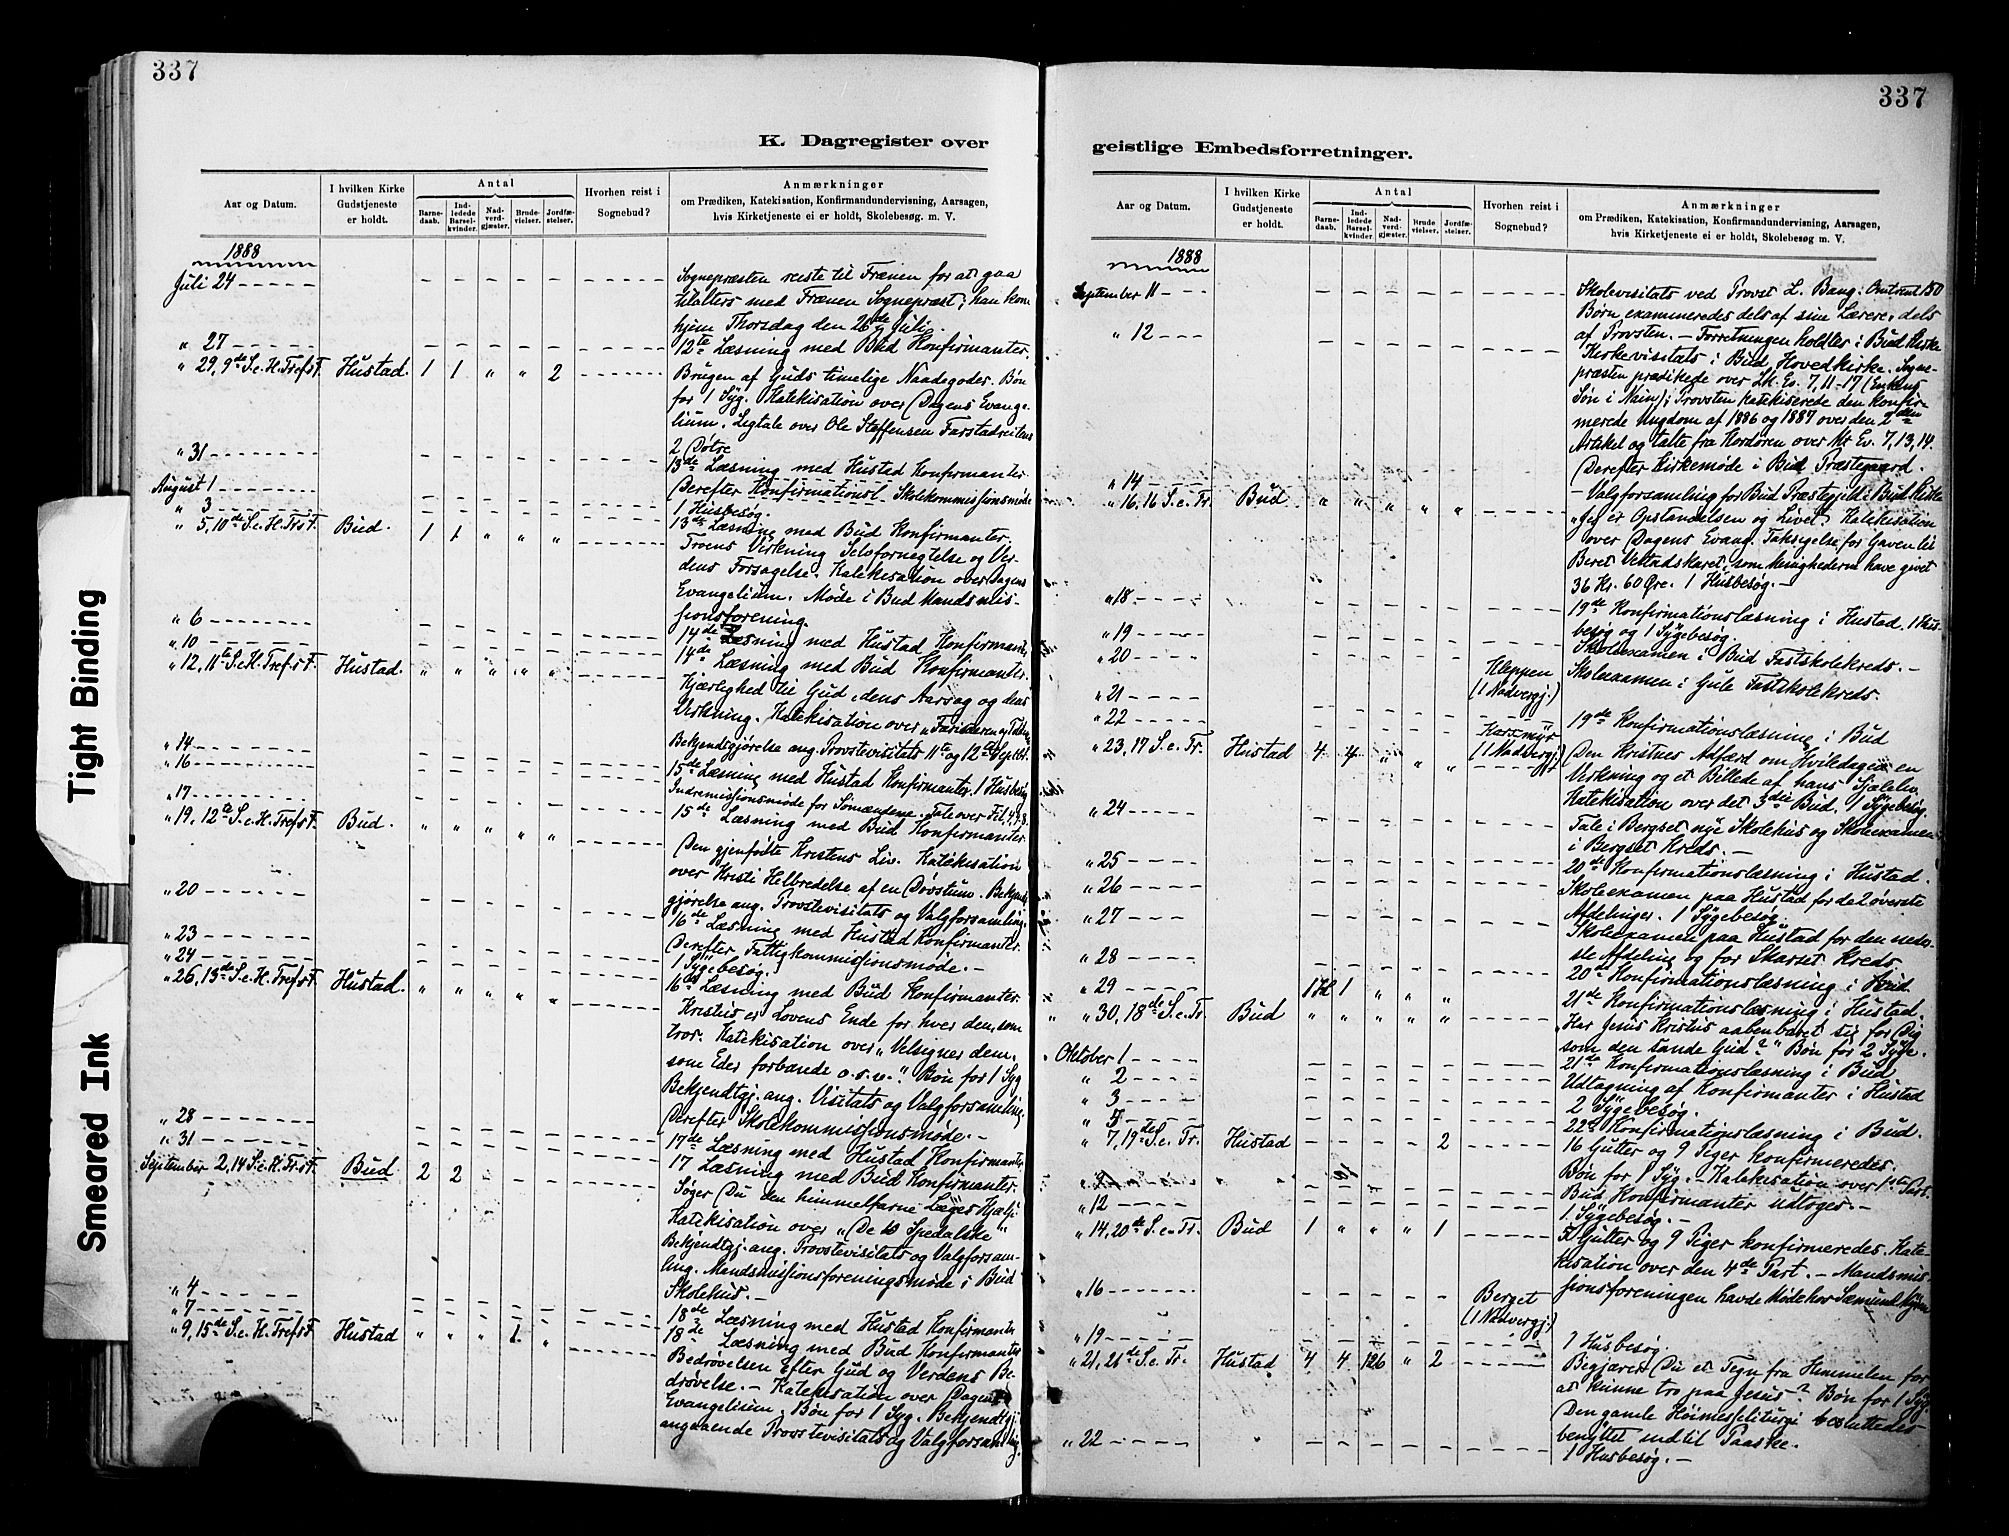 337
337
K. Dagregister over
geistlige Embedsforretninger.
Tight Binding
Sneared Ink
Aar og Datum.
I hvilken Kirke Gudstjeneste er holdt.
Antal
Barnedaab. Indledede Barselkvinder. Nadverdgjæster. Brudevielser. Jordfæstelser.
Hvorhen reist i Sognebud?
Anmærkninger
om Prædiken, Katekisation, Konfirmandundervisning, Aarsagen,
hvis Kirketjeneste ei er holdt, Skolebesøg. m. V.
1888
Juli 24 Sognepræsten reiste til Frænen for at gaa
tilalters med Frænen Sognepræst; han kom
hjem Thorsdag den 26de Juli.
" 27 12te Læsning med Bud Konfirmanter.
" 29, 9de S. e. H. Trefs F. Hustad. 1 1 " " 2 Brugen af Guds timelige Naadegoder. Bøn
for 1 Syg. Katekisation over Dagens Evange-
lium. Ligtale over Ole Steffensen Farstadreitens
2 Døtre
" 31 13de Læsning med Hustad Konfirmanter.
August 1 Derefter Skolekommissionsmøde
" 3 1 Husbesøg.
13de Læsning med Bud Konfirmanter.
" 5, 10de S. e. H. Trs F. Bud. 1 1 " " " Troens Virkning Selvfornegtelse og Ver-
dens Forsagelse. Katekisation over Dagens
Evangelium. Møde i Bud Mandsmis-
sionsforening.
" 6 14de Læsning med Hustad Konfirmant.
" 10 14de Læsning med Bud Konfirmanter.
" 12, 11te S. e. H. Trefs F. Hustad. " " " " " Kjærlighed til Gud, dens Aarsag og dens
Virkning. Katekisation over "Farisæeren og
Bekjendtgjørelse ang. Provstevisitats 11te og 12te Septbr.
" 14 15de Læsning med Hustad Konfirmanter. 1 Husbesøg
" 16 Indremissionsmøde for Sømændene. Tale over Fil. 4, 4-8.
" 17 15de Læsning med Bud Konfirmanter.
" 19, 12te S. e. H. Trefs F. Bud. " " " " " Den gjenfødte Kristens Liv. Katekisation
over Kristi Helbredelse af en Døvstum. Bekjendt-
gjørelse ang. Provstevisitats og Valgforsamling.
" 20 16de Læsning med Hustad Konfirmanter.
Derefter Fattigkommissionsmøde. -
" 23 1 Sygebesøg.
" 24 16de Læsning med Bud Konfirmanter.
" 26, 13de S. e. H. Trefs F. Hustad. " " " " " Kristus er Lovens Ende for hver den, som
tror. Katekisation over "Velsigner dem,
som Eder forbande o. s. v." Bøn for 1 Syg
Bekjendtgj. ang. Visitats og Valgforsamling.
Derefter Skolekommissionsmøde. -
" 28 17de Læsning med Hustad Konfirmanter
" 31 17 Læsning med Bud Konfirmanter.
September 2, 14 S. e. H. Trs F. Bud 2 2 Søger Du den himmelfarne Læges Hjælp
Katekisation over "De 10 Spedalske"
Bekjendtgj. ang. Provstevisitats og Valgforsam-
ling. Mandsmissionsforeningsmøde i Bud
Skolehus. -
" 4 18de Læsning med Hustad Konfirmanter
" 7 18de Læsning med Bud Konfirmanter
" 9, 15de S. e. H. Trefs F. Hustad " " " 1. " Bedrøvelsen efter Gud og Verdens Be-
drøvelse. - Katekisation over Dagens
Evangelium. Bøn for 1 Syg. Bekjendtgj.
angaaende Provstevisitats og Valgforsamling.
Aar og Datum.
I hvilken Kirke Gudstjeneste er holdt.
Antal
Barnedaab. Indledede Barselkvinder. Nadverdgjæster. Brudevielser. Jordfæstelser.
Hvorhen reist i Sognebud?
Anmærkninger
om Prædiken, Katekisation, Konfirmandundervisning, Aarsagen,
hvis Kirketjeneste ei er holdt, Skolebesøg m. V.
1888
September 11 Skolevisitats ved Provst L. Bang. Omtrent 150
Børn examineredes dels af sine Lærere, dels
af Provsten. - Forretningen holdtes i Bud Kirke
" 12 Kirkevisitats i Bud Hovedkirke. Sogne-
præsten prædikede over Lk. Ev. 7, 11-17 (Enkens
Søn i Nain); Provsten katekiserede den konfir-
merede Ungdom af 1886 og 1887 over den 2den
Artikel og talte fra Kordøren over Mt Ev. 7, 13, 14.
Derefter Kirkemøde i Bud Præstegaard.
" 14 - Valgforsamling for Bud Præstegjeld i Bud Kirke
" 16, 16 S. e. Tr. Bud " " " " " "Jeg er Opstandelsen og Livet". Katekisation
over Dagens Evang. Taksigelse for Gaven til
som Menighederne have givet
36 Kr. 60 Øre. 1 Husbesøg. -
" 18 19de Konfirmationslæsning i Hustad. 1 Hus-
besøg og 1 Sygebesøg.
" 19 Skoleexamen i Bud Fastskolekreds. -
" 20 Kleppen (1 Nadvergj.) Skoleexamen i Gule Fastskolekreds.
" 21 19de Konfirmationslæsning i Bud
" 22 Karsmyr (1 Nadvergj.)
" 23, 17 S. e. Tr. Hustad 4 4 " " " Den Kristnes Adfærd om Hviledagen en
Virkning og et Billede af hans Sjæleliv
Katekisation over det 3die Bud. 1 Sygebesøg.
" 24 Tale i Bergset nye Skolehus og Skoleexamen
i Bergset Kreds. -
" 25 20de Konfirmationslæsning i Hustad.
" 26 Skoleexamen paa Hustad for de 2 øverste
Afdelinger. 1 Sygebesøg.
" 27 Skoleexamen paa Hustad for den neder-
ste Afdeling og for Skarset Kreds.
" 28 20de Konfirmationslæsning i Bud
" 29 1 " " " 21de Konfirmationslæsning i Hustad.
" 30, 18de S. e. Tr. Bud " " " " " "Har Jesus Kristus aabenbaret sig for Dig
som den sande Gud?" Bøn for 2 Syge.
Oktober 1 21de Konfirmationslæsning i Bud
" 2 Udtagning af Konfirmanter i Hustad
" 3 2 Sygebesøg.
" 5 22de Konfirmationslæsning i Bud.
" 7, 19de S. e. Tr. Hustad 2 16 Gutter og 9 Piger konfirmeredes.
Bøn for 1 Syg. - Katekisation over 1ste Part.
Bud Konfirmanter udtoges. -
" 12 1 Sygebesøg. -
" 14, 20de S. e. Tr. Bud 1 " " " 1 7 Gutter og 9 Piger konfirmeredes. Kate-
kisation over den 4de Part. - Mandsmis-
" 16 Berget (1 Nadvergj.) sionsforeningen havde Møde hos
" 19 1 Husbesøg.
" 21, 21de S. e. Tr. Hustad 4 4 126 " 2 Begjærer Du et Tegn fra Himmelen for
at kunne tro paa Jesus? Bøn for 1 Syg
Den gamle Høimesseliturgi besluttedes
benyttet indtil Paaske.
" 22 1 Husbesøg. -